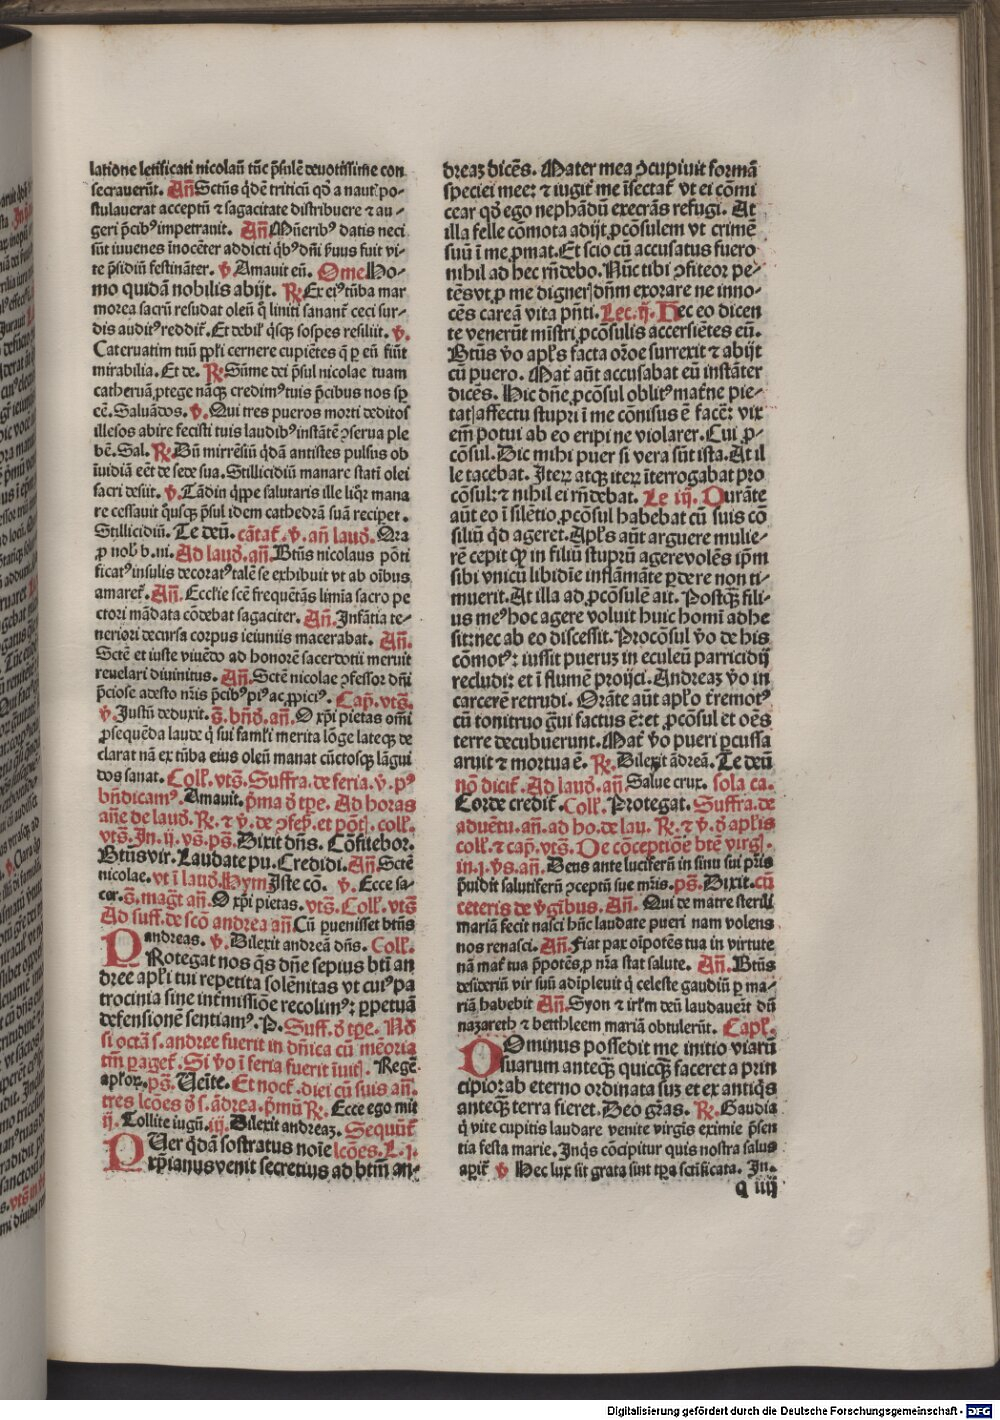 latione letificati nicolaū tūc p̄sulē deuotissime con
secrauerūt. Añ Sctūs q̄dē triticū qd̓ a nautꝭ po-
stulauerat acceptū ⁊ sagacitate distribuere ⁊ au-
geri p̄cibꝰ impetrauit. Añ. Mūeribꝰ datis neci
sūt iuuenes inocēter addicti q̄bꝰ dn̄i p̄uus fuit vi-
te p̄sidiū festināter. ℣ Amauit eū. Ome Ho-
mo quidā nobilis abijt. ℟. Ex eiꝰ tūba mar
morea sacrū resudat oleū q̄ liniti sanant̄ ceci sur-
dis auditꝰ reddit̄. Et debil̕ q̄sꝗ sospes resiliit. ℣.
Cateruatim tuū pp̄li cernere cupiētes q̄ ꝑ eū fiūt
mirabilia. Et de. ℟. Sūme dei p̄sul nicolae tuam
catheruā ꝓtege nāꝗ credimꝰ tuis p̄cibus nos sp
eē. Saluādos. ℣. Qui tres pueros morti deditos
illesos abire fecisti tuis laudibꝰ instātē ꝯserua ple
bē. Sal. ℟. Dū mirrēsiū q̄dā antistes pulsus ob
iuidiā eēt de sede sua. Stillicidiū manare statī olei
sacri desiit. ℣. Tādin q̄ppe salutaris ille liq̄r mana
re cessauit q̄usꝗ p̄sul idem cathedrā suā recipet.
Stillicidiū. Te deū. cātat̄. ℣. añ laud̓. Ora
ꝓ nob̓ b. ni. Ad laud̓. añ. Btūs nicolaus pōti
ficatꝰ insulis decoratꝰ talē se exhibuit vt ab oībus
amaret̄. Añ. Eccl̄ie scē frequētās limīa sacro pe
ctori mādata cōdebat sagaciter. Añ. Infātia te-
neriori decursa corpus ieiuniis macerabat. Añ.
Sctē et iuste viuēdo ad honorē sacerdotii meruit
reuelari diuinitus. Añ. Sctē nicolae ꝯfessor dn̄i
p̄ciose adesto nr̄is p̄cibꝰ piꝰ ac ꝓpiciꝰ. Cap̄. vts̄.
℣. Justū deduxit. s̄. bn̄d̓. añ. O xp̄i pietas om̄i
ꝓsequēda laude q̄ sui famli merita lōge lateꝗ de
clarat nā ex tūba eius oleū manat cūctosꝗ lāgui
dos sanat. Coll̕. vts̄. Suffra. de feria. ℣. pꝰ
bn̄dicamꝰ. Amauit. p̄ma d̓ tp̄e. Ad horas
añe de laud̓. ℟. ⁊ ℣. de ꝯfep̄. et pōtꝭ. coll̕.
vts̄. In. ij. vs̄. ps̄. Dixit dn̄s. Cōfitebor.
Btūsvir. Laudate pu. Credidi. Añ. Sctē
nicolae. vt ī laud̓. Hym Iste cō. ℣. Ecce sa-
cer. s̄. mag̓t añ. O xp̄i pietas. vts̄. Coll̕. vts̄
Ad suff. de scō andrea añ Cū ꝑuenisset btūs
andreas. ℣. Dilexit andreā dn̄s. Coll̕.
PRotegat nos q̄s dn̄e sepius btī an
dree apl̕i tui repetita solēnitas vt cuiꝰ pa
trocinia sine int̄missiōe recolimꝰ: ꝑpetuā
defensionē sentiamꝰ. P. Suff. d̓ tp̄e. Nō
si octā s. andree fuerit in dn̄ica cū mēoria
tm̄ ꝑaget̄. Si v̓o ī feria fuerit īuitꝭ. Regē
apl̕oꝝ. ps̄. Uēite. Et noct̄. diei cū suis añ.
tres lcōes d̓ s. ādrea. p̄mū ℟. Ecce ego mit
ij. Tollite iugū. iij. Dilexit andreaꝫ. Sequūt̄
PUer q̄dā sostratus noīe lcōes. L. j.
xp̄ianus venit secretius ad btm̄ an-
dreaꝫ dicēs. Mater mea ꝯcupiuit formā
speciei mee: ⁊ iugit̄ me īsectat̄ vt ei cōmi
cear qd̓ ego nephādū execrās refugi. At
illa felle cōmota adijt ꝓcōsulem vt crimē
suū ī me ꝓmat. Et scio cū accusatus fuero
nihil ad hec rn̄debo. Nūc tibi ꝯfiteor pe-
tēs vt ꝓ me dignerꝭ dn̄m exorare ne inno-
cēs careā vita pn̄ti. Lec. ij. Hec eo dicen
te venerūt mīstri ꝓcōsulis accersiētes eū.
Btūs v̓o apl̕s facta or̄oe surrexit ⁊ abijt
cū puero. Mat̄ aūt accusabat eū instāter
dicēs. Hic dn̄e ꝓcōsul oblitꝰ mat̄ne pie-
tatꝭ affectu stupri ī me cōnisus ē facē: vix
em̄ potui ab eo eripi ne violarer. Cui ꝓ-
cōsul. Dic mihi puer si vera sūt ista. At il
le tacebat. Iteꝝ atꝗ iteꝝ īterrogabat pro
cōsul: ⁊ nihil ei rn̄debat. Le iij. Durāte
aūt eo ī silētio ꝓcōsul habebat cū suis cō
siliū qd̓ ageret. Apl̕s aūt arguere mulie-
rē cepit ꝙ in filiū stuprū agere volēs ip̄m
sibi vnicū libidīe inflāmāte ꝑdere non ti-
muerit. At illa ad ꝓcōsulē ait. Postꝗ̄ fili-
us meꝰ hoc agere voluit huic homī adhe
sit: nec ab eo discessit. Procōsul v̓o de his
cōmotꝰ: iussit pueruꝫ in eculeū parricidij
recludi: et ī flumē proijci. Andreaꝫ v̓o in
carcerē retrudi. Orāte aūt apl̕o t̄remotꝰ
cū tonitruo g̓ui factus ē: et ꝓcōsul et oēs
terre decubuerunt. Mat̄ v̓o pueri ꝑcussa
aruit ⁊ mortua ē. ℟. Dilexit ādreā. Te deū
nō dicit̄. Ad laud̓. añ Salue crux. sola ca.
Corde credit̄. Coll̕. Protegat. Suffra. de
aduētu. añ. ad ho. de lau. ℟. ⁊ ℣. d̓ apl̕is
coll̕. ⁊ cap̄. vts̄. De cōceptiōe btē virgꝭ.
in. j. vs̄. añ. Deus ante luciferū in sinu sui pr̄is
p̄uidit salutiferū ꝯceptū sue mr̄is. ps̄. Dixit. cū
ceteris de v̓gībus. Añ. Qui de matre sterili
mariā fecit nasci hūc laudate pueri nam volens
nos renasci. Añ. Fiat pax oīpotēs tua in virtute
nā mat̄ tua p̄potēs ꝓ nr̄a stat salute. Añ. Btūs
desideriū vir suū adīpleuit q̄ celeste gaudiū ꝑ ma-
riā habebit Añ. Syon ⁊ irl̕m deū laudauer̄t dū
nazareth ⁊ betthleem mariā obtulerūt. Capl̕.
DOminus possedit me initio viarū
suarum anteꝗ̄ quicꝗ̄ faceret a prin
cipio: ab eterno ordinata suꝫ et ex antiq̄s
anteꝗ̄ terra fieret. Deo gr̄as. ℟. Gaudia
q̄ vite cupitis laudare venite virgīs eximie p̄sen
tia festa marie. Inq̄s cōcipitur quis nostra salus
aꝑit̄ ℣ Hec lux sit grata sunt tp̄ra scīficata. In.
q iiij
Digitalisierung gefördert durch die Deutsche Forschungsgemeinschaft - DFG